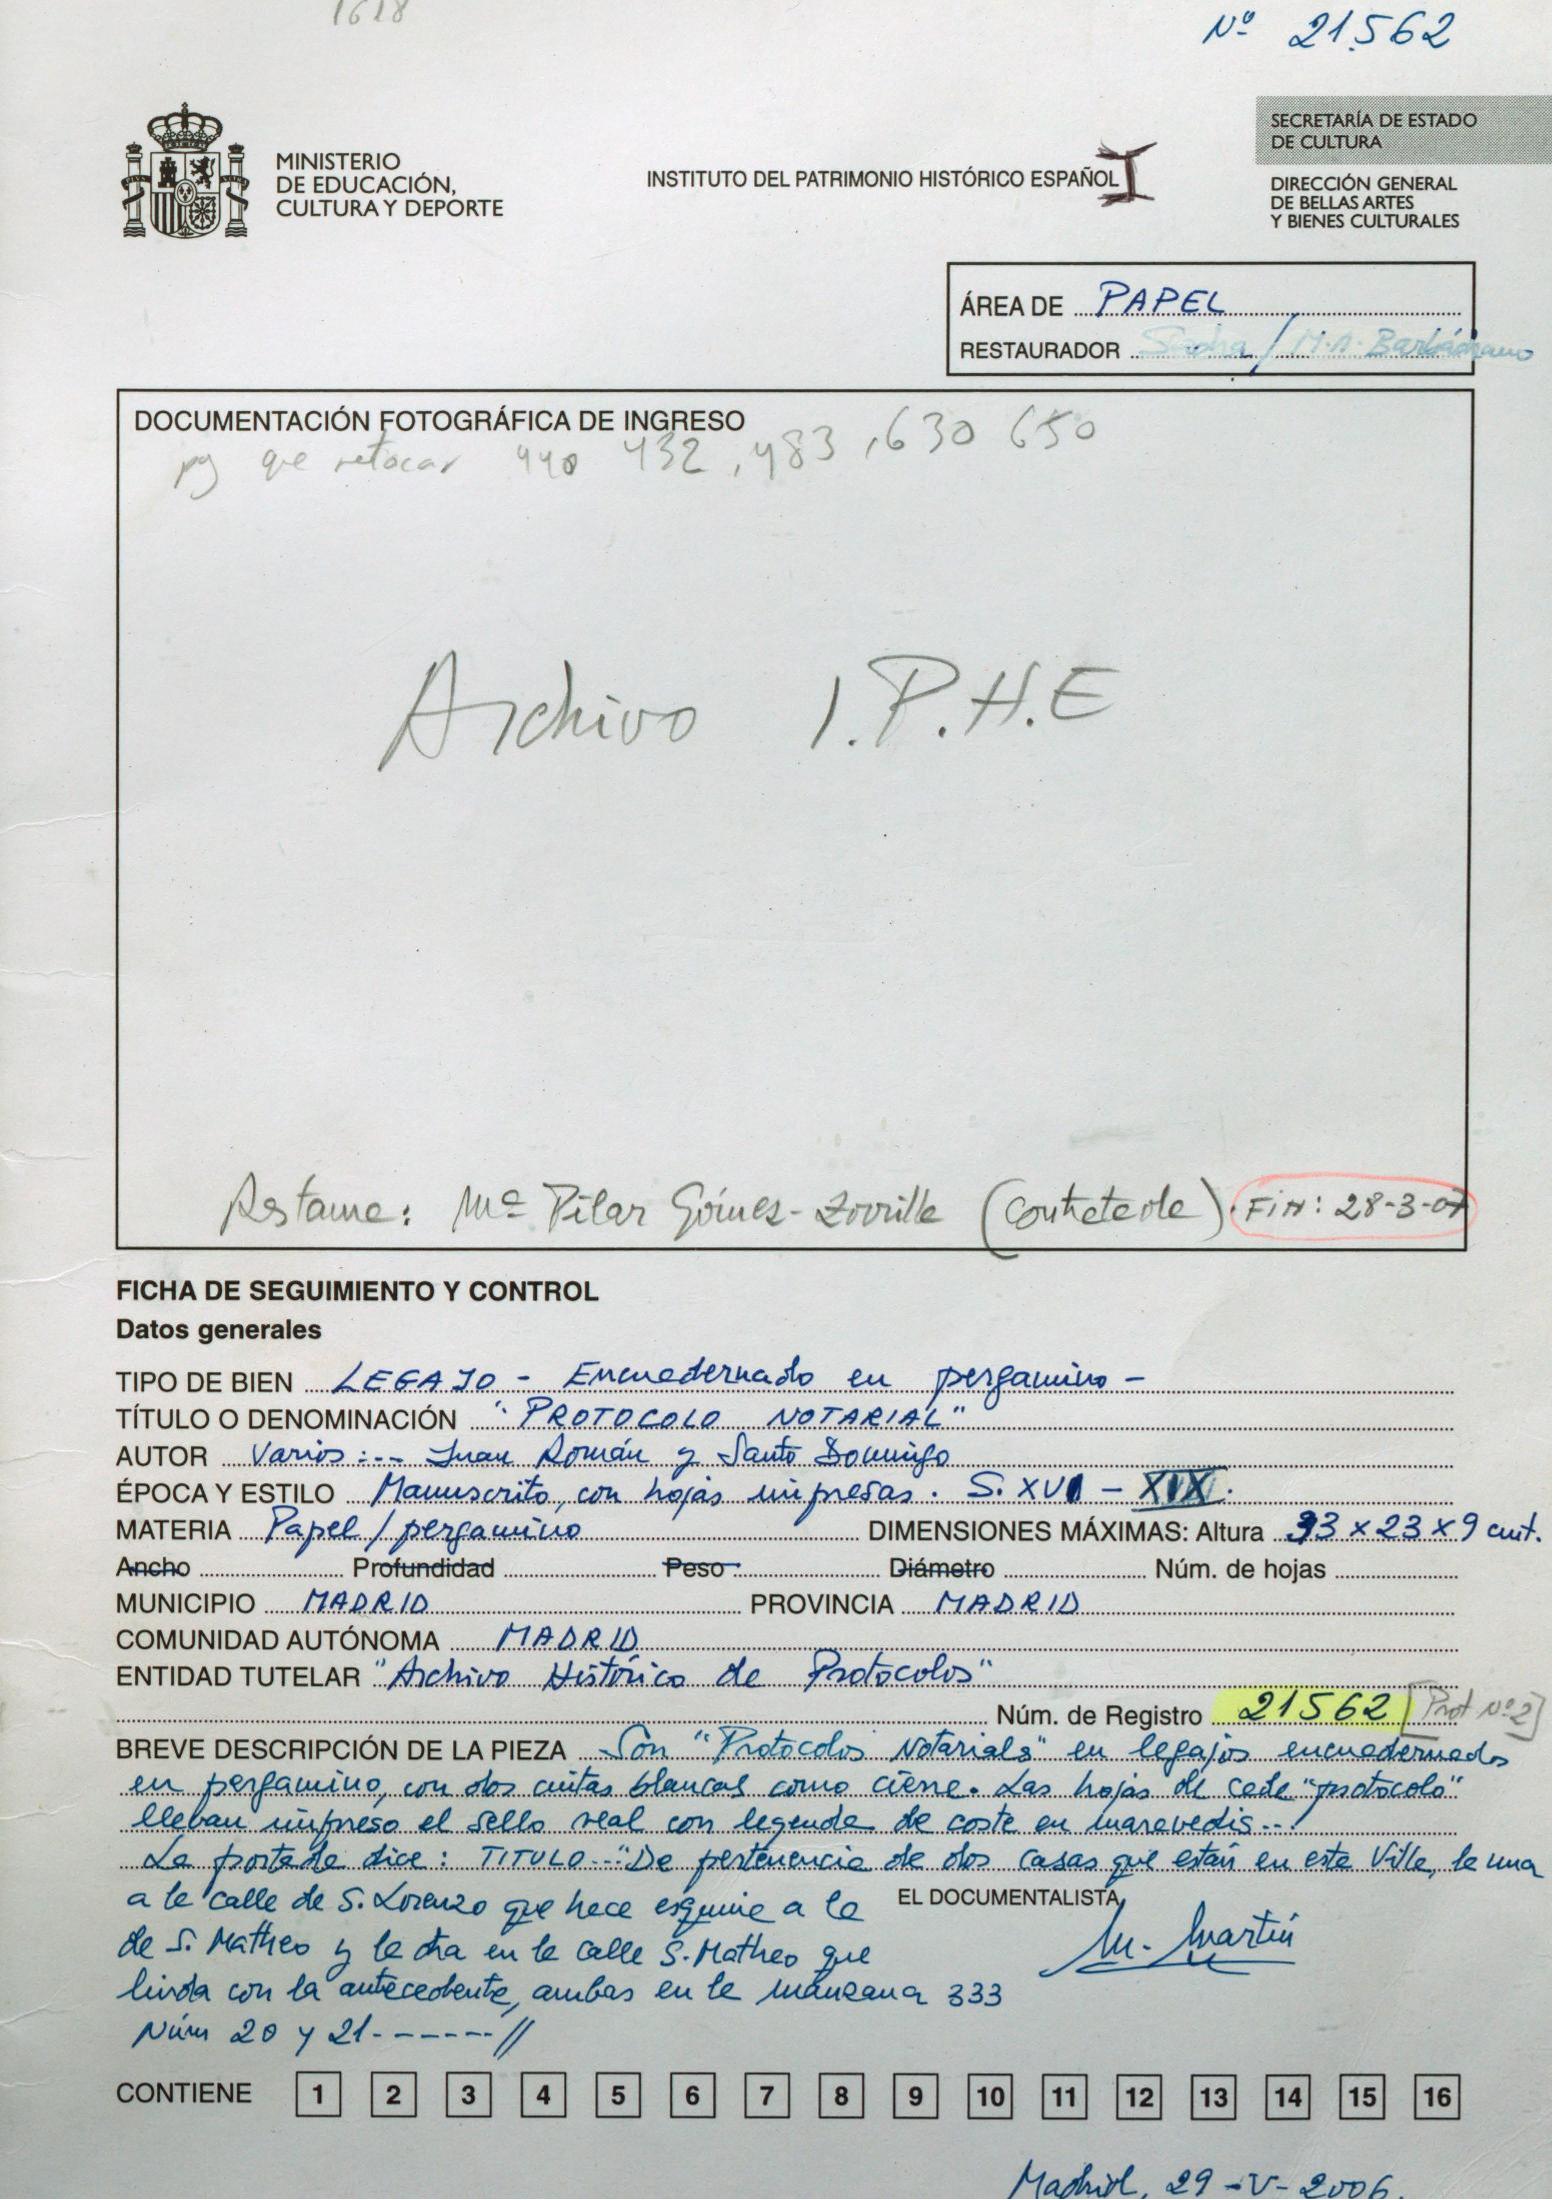 1618
Nº 21.562
MINISTERIO
DE EDUCACIÓN,
CULTURA Y DEPORTE
INSTITUTO DEL PATRIMONIO HISTÓRICO ESPAÑOL I
SECRETARÍA DE ESTADO
DE CULTURA
DIRECCIÓN GENERAL
DE BELLAS ARTES
Y BIENES CULTURALES
ÁREA DE PAPEL
RESTAURADOR / M.A. Barbáchano
DOCUMENTACIÓN FOTOGRÁFICA DE INGRESO
pg que retocar 440 432, 483, 630 650
Archivo I.P.H.E
Mª Pilar Gómez-Zorrilla (Contratada). FIN: 28-3-07
FICHA DE SEGUIMIENTO Y CONTROL
Datos generales
TIPO DE BIEN LEGAJO - Encuadernado en pergamino -
TÍTULO O DENOMINACIÓN "PROTOCOLO NOTARIAL"
AUTOR Varios:-- Juan Román y Santo Domingo
ÉPOCA Y ESTILO Manuscrito, con hojas impresas. S. XVI - XIX.
MATERIA Papel / pergamino DIMENSIONES MÁXIMAS: Altura 33 x 23 x 9 cmt.
Ancho Profundidad Peso Diámetro Núm. de hojas
MUNICIPIO MADRID PROVINCIA MADRID
COMUNIDAD AUTÓNOMA MADRID
ENTIDAD TUTELAR "Archivo Histórico de Protocolos"
Núm. de Registro 21562 [Prot Nº 2]
BREVE DESCRIPCIÓN DE LA PIEZA Son "Protocolos Notarials" en legajos encuadernados
en pergamino, con dos cintas blancas como cierre. Las hojas de cada "protocolo"
llevan impreso el sello real con leyenda de coste en maravedis...
La portada dice: TITULO--"De pertenencia de dos casas que están en esta Villa, la una
a la calle de S. Lorenzo que hace esquina a la
EL DOCUMENTALISTA,
de S. Matheo y la otra en la calle S. Matheo que
M. Martín
linda con la antecedente, ambas en la manzana 333
Núm 20 y 21-------//
CONTIENE 1 2 3 4 5 6 7 8 9 10 11 12 13 14 15 16
Madrid, 29-V-2006.